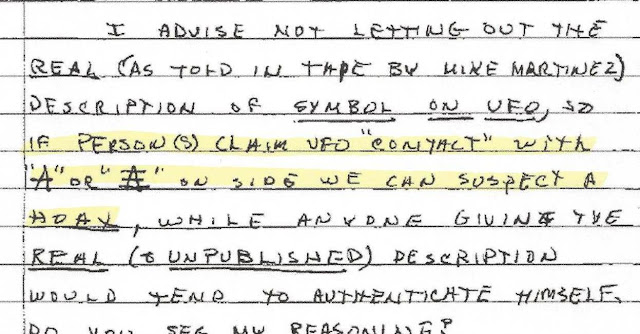 I ADVISE NOT LETTING OUT THE
REAL (AS TOLD IN TAPE BY MIKE MARTINEZ)
DESCRIPTION OF SYMBOL ON UFO, SO
IF PERSON(S) CLAIM UFO "CONTACT" WITH
"A" OR "A" ON SIDE WE CAN SUSPECT A
HOAX, WHILE ANYONE GIVING THE
REAL (& UNPUBLISHED) DESCRIPTION
WOULD TEND TO AUTHENTICATE HIMSELF.
DO YOU SEE MY REASONING?